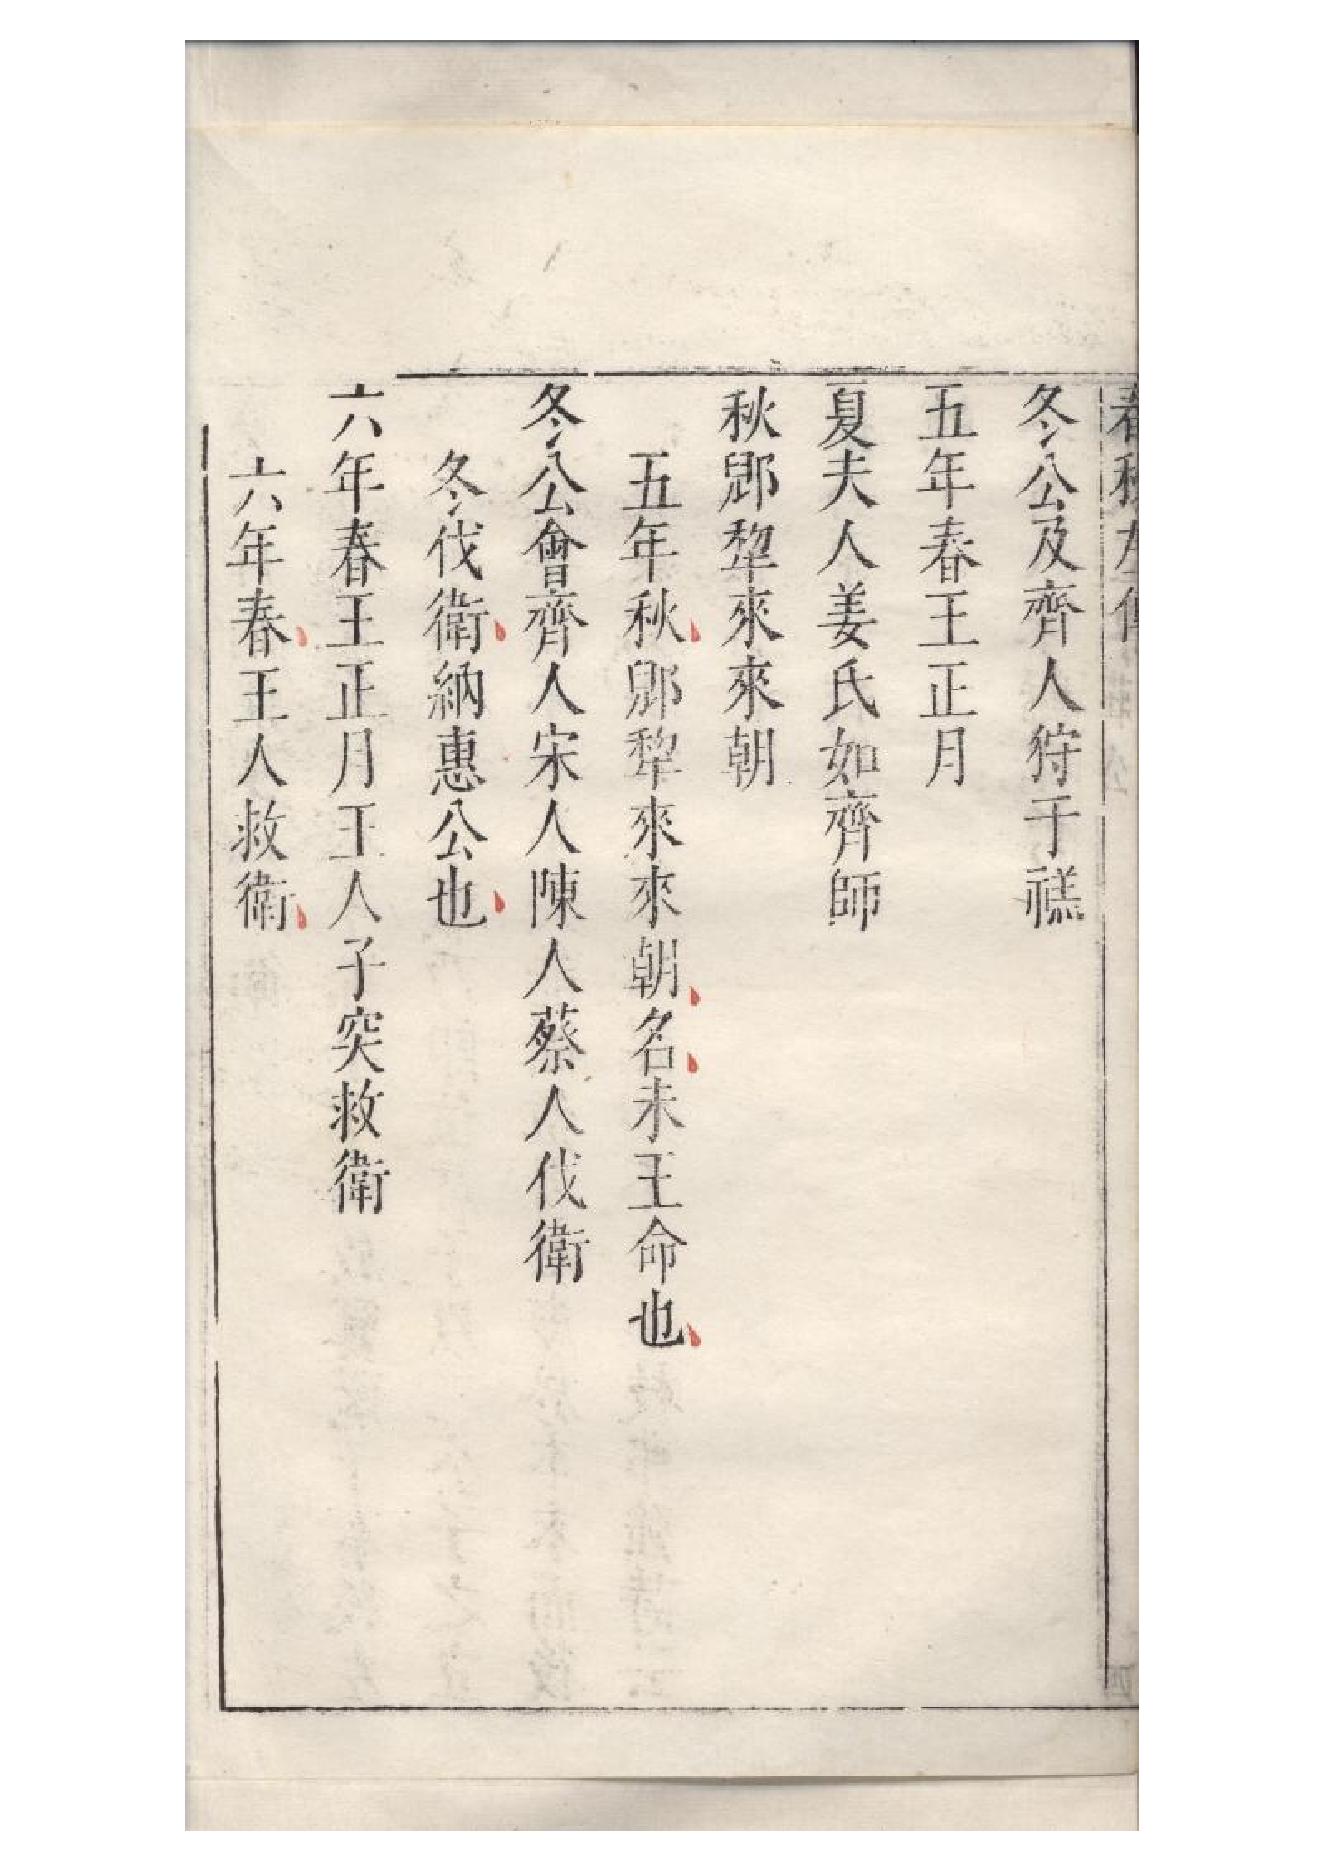 冬公及齊人狩于禚
五年春王正月
夏夫人姜氏如齊師
秋郳犂來來朝
五年秋郳犂來來朝名未王命也
冬公會齊人宋人陳人蔡人伐衛
冬伐衛納惠公也
六年春王正月王人子突救衛
六年春王人救衛